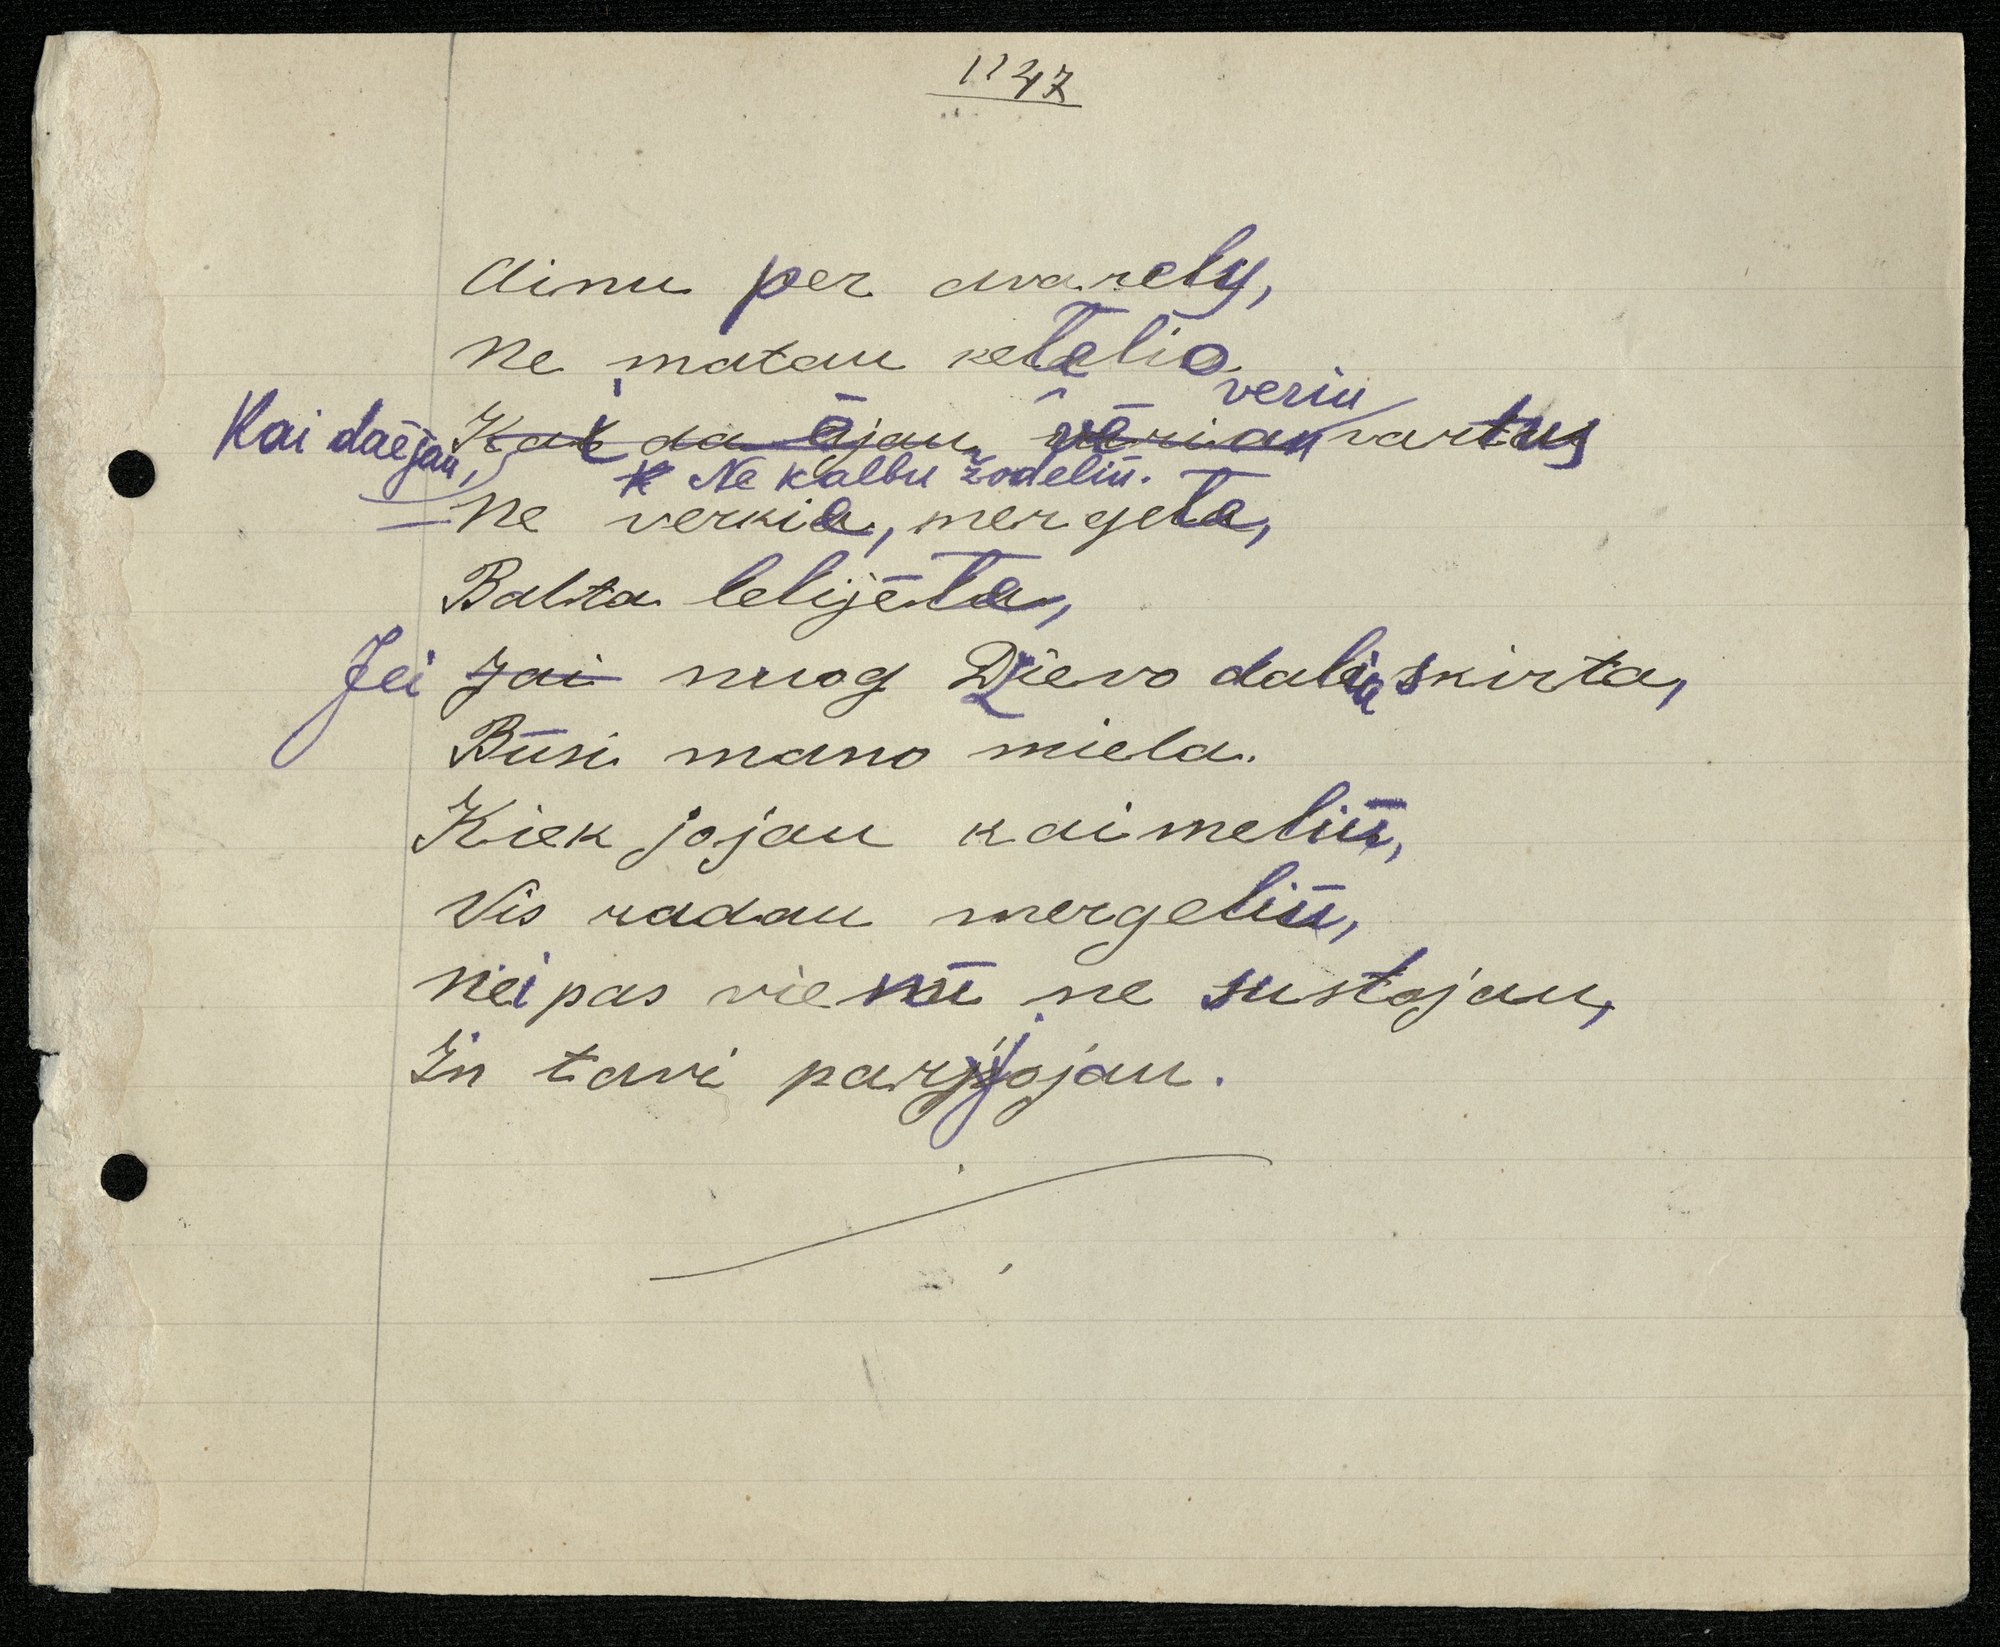 1247
Ainu per dvarely,
Ne matau kelelio
veriu
Kai daėjau, Kai da ējau, vērian vartus
Ne kalbu žodeliū.
Ne verkia, mergela,
Balta lelijėla,
Jei Jai nuog Dievo dalia skirta,
Būsi mano miela.
Kiek jojau kaimeliū,
Vis radau mergeliū,
Nei pas vienū ne sustojau,
In tavi parjojau.